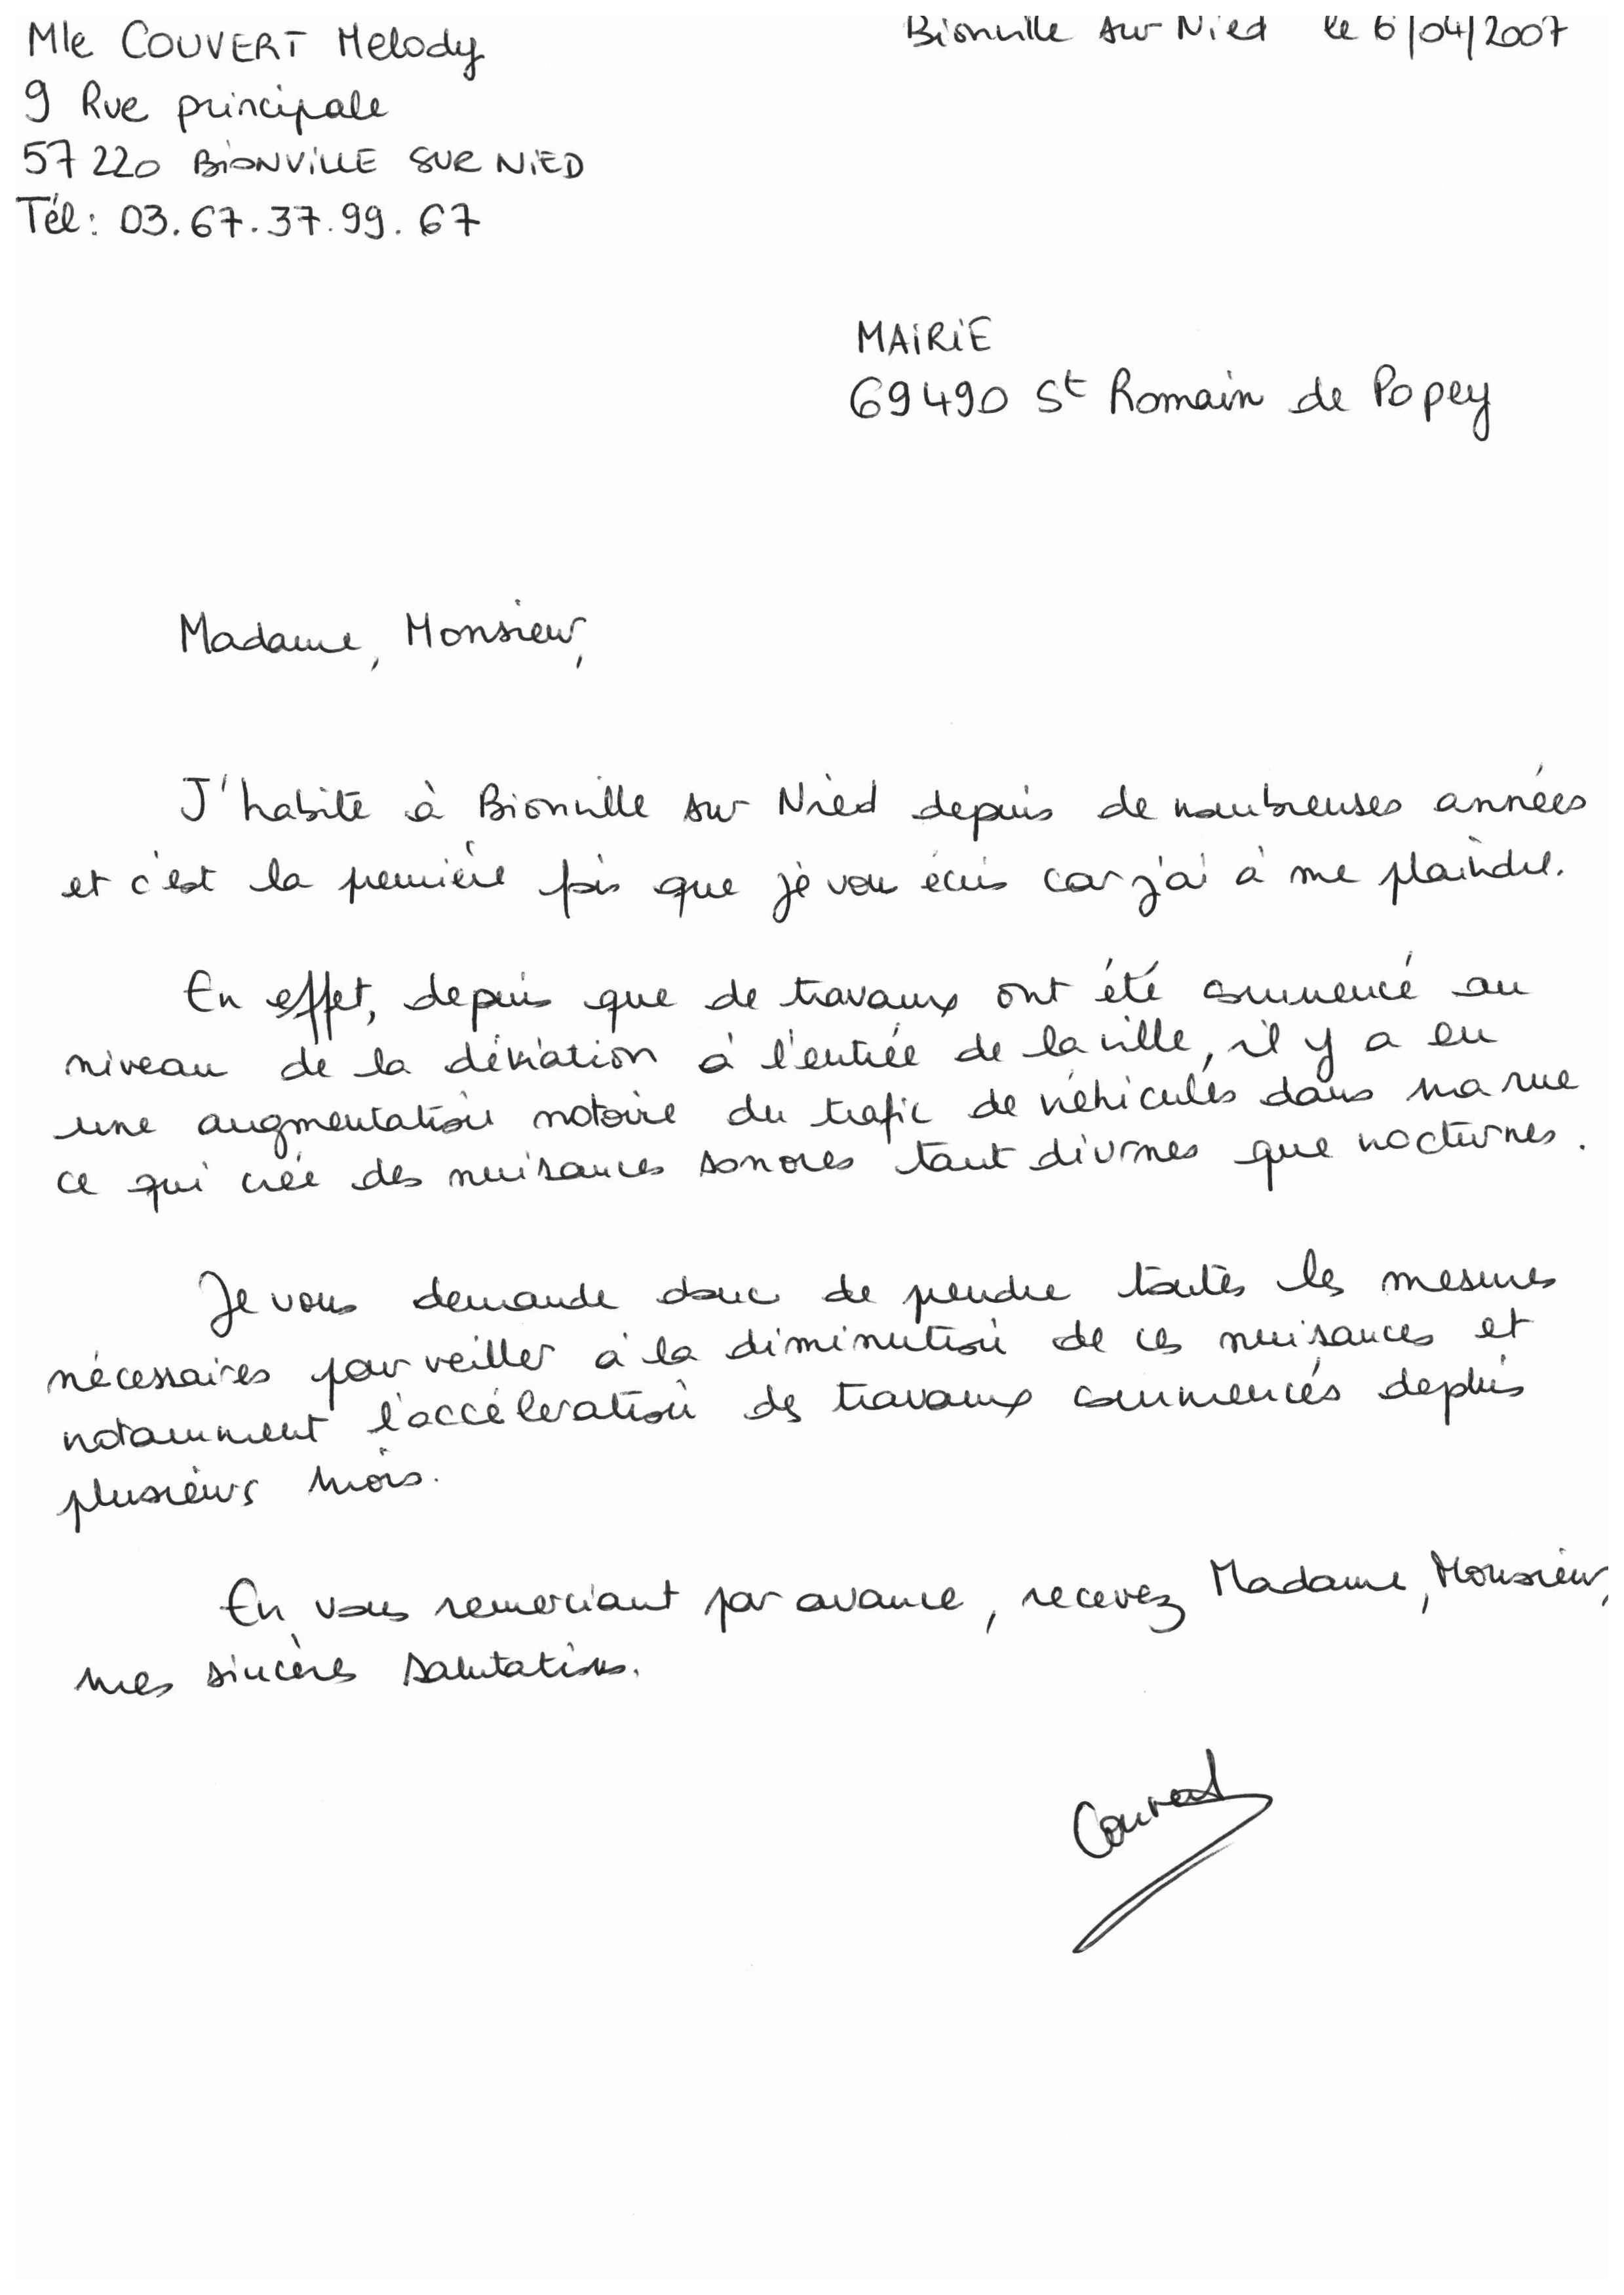 Mle COUVERT Melody
Bionville sur Nied le 6/04/2007
9 Rue principale
57220 BIONVILLE SUR NIED
Tél: 03.67.37.99.67
MAIRIE
69490 St Romain de Popey
Madame, Monsieur,
J'habite à Bionville sur Nied depuis de nombreuses années
et c'est la première fois que je vous écris car j'ai à me plaindre.
En effet, depuis que de travaux ont été commencé au
niveau de la déviation à l'entrée de la ville, il y a eu
une augmentation notoire du trafic de véhicules dans ma rue
ce qui crée des nuisances sonores tant diurnes que nocturnes.
Je vous demande donc de prendre toutes les mesures
nécessaires pour veiller à la diminution de ces nuisances et
notamment l'accéleration des travaux commencés depuis
plusieurs mois.
En vous remerciant par avance, recevez Madame, Monsieur,
mes sincères salutations.
Couvert